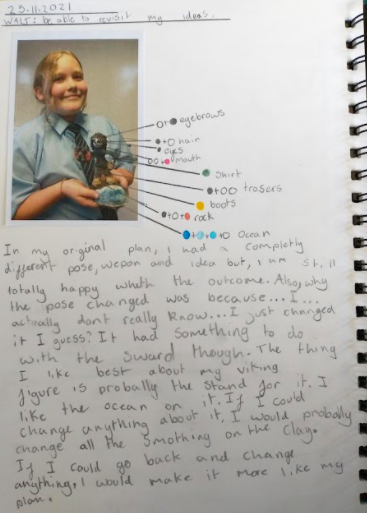 25.11.2021
WALT: be able to revisit my ideas.
eyebrows
hair
eyes
mouth
Shirt
trosers
boots
rock
Ocean
In my original plan, I had a completly
different pose, wepon and idea but, I am still
totally happy whith the outcome. Also, why
the pose changed was because... I...
actually dont really know... I just changed
it I guess? It had something to do
with the sward though. The thing
I like best about my viking
figure is probally the stand for it. I
like the ocean on it. If I could
change anything about it, I would probally
change all the smothing on the clay.
If I could go back and change
anything, I would make it more like my
plan.